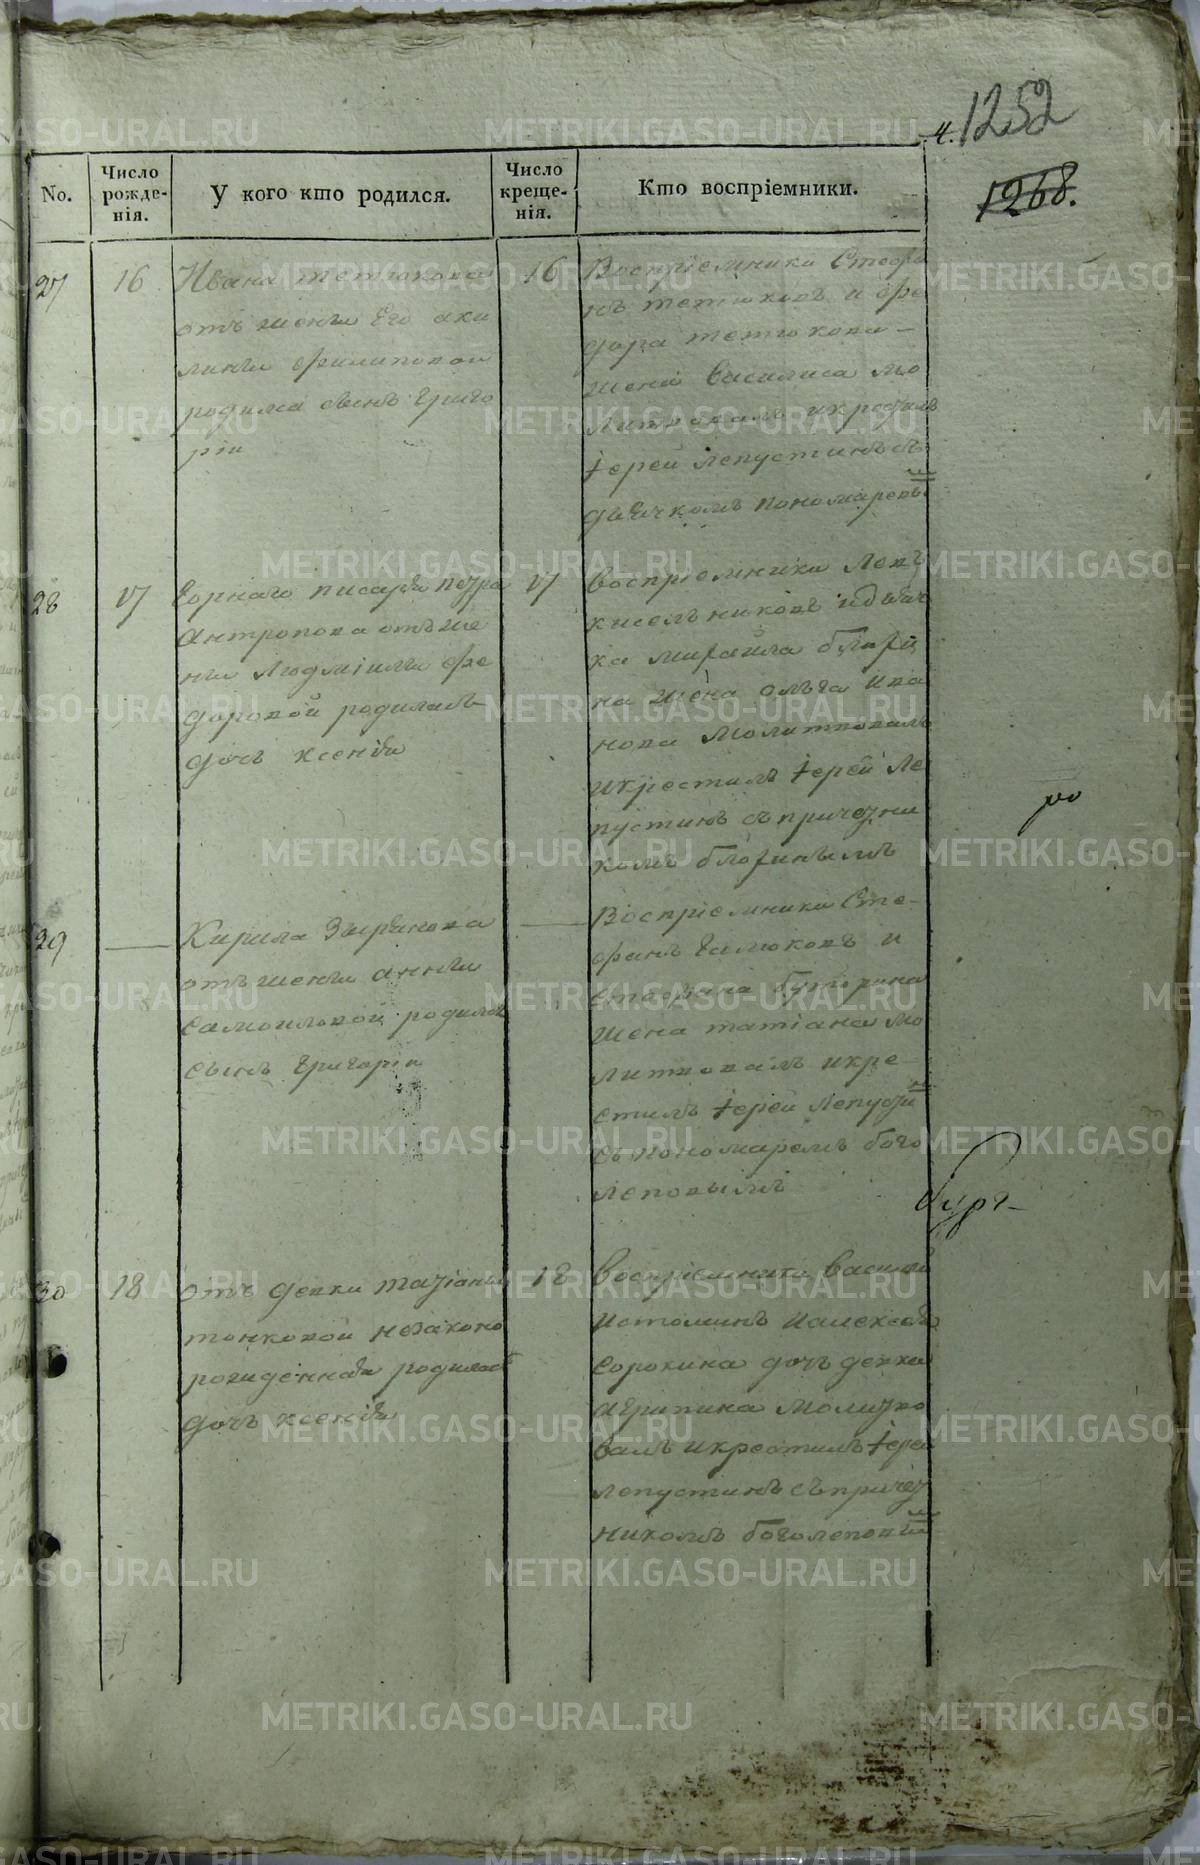 1252
1268.
No.
Число рожде-нія.
У кого кто родился.
Число креще-нія.
Кто воспріемники.
27
16
Ивана тетюкова
отъ жены Его аки
лины филиповой
родился сынъ Григо
рій
16
Воспріемники Стефа
нъ тетюковъ и фе
дора тетюкова
жена Василиса мо
литвовалъ икрестилъ
іерей лепустинъ съ
дьячкомъ пономаревы
28
17
Горнаго писаря петра
антропова отъ же
ны людмилы фе
доровой родилась
дочь ксенія
17
воспріемники левъ
кисельниковъ идьяч
ка михайла
на жена ольга ива
нова молитвовалъ
икрестилъ іерей ле
пустинъ съ причетни
комъ
29
Кирила Зырянова
отъ жены анны
самоиловой родился
сынъ григорій
Воспріемники Сте-
фанъ и
жена татіана мо
литвовалъ икре
стилъ іерей лепусти
съ пономаремъ бого
леповымъ
30
18
отъ девки татіаны
тонковой незаконо
рожденная родилась
дочь ксенія
18
воспріемники василий
истоминъ иалексея
сорокина дочь девка
агрипина молитво
валъ икрестилъ іерей
лепустинъ съ причет
никомъ боголеповым
METRIKI.GASO-URAL.RU